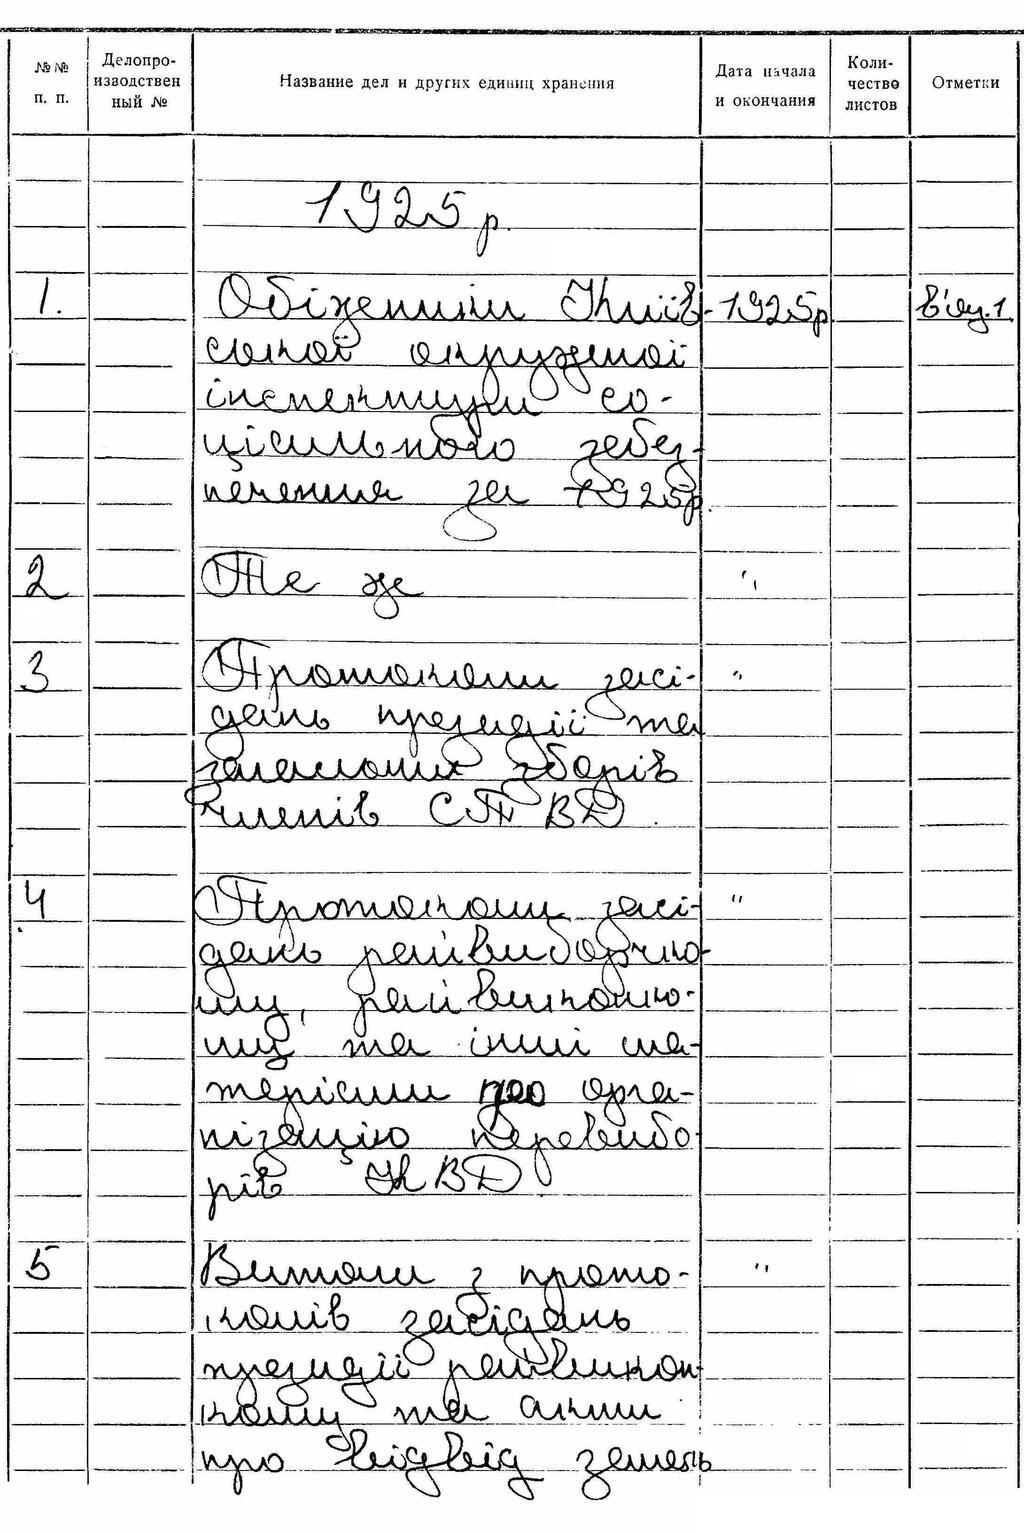 №№ п. п.
Делопро-изводствен ный №
Название дел и других единиц хранения
Дата начала и окончания
Коли-чество листов
Отметки
1925 р.
1. Обіжники Київ- 1925р.
ської окружної
інспектури со-
ціального забез-
печення за 1925р.
2 Те же "
3 Протоколи засі- "
дань президії та
загальних зборів
членів СТВД.
4 Протоколи засі- "
дань райвиборчко-
му, райвиконко-
му та інші ма-
теріали про орга-
нізацію перевибо
рів КВД.
5 Витяги з прото- "
колів засідань
президії райвикон-
кому та акти
про відвід земель